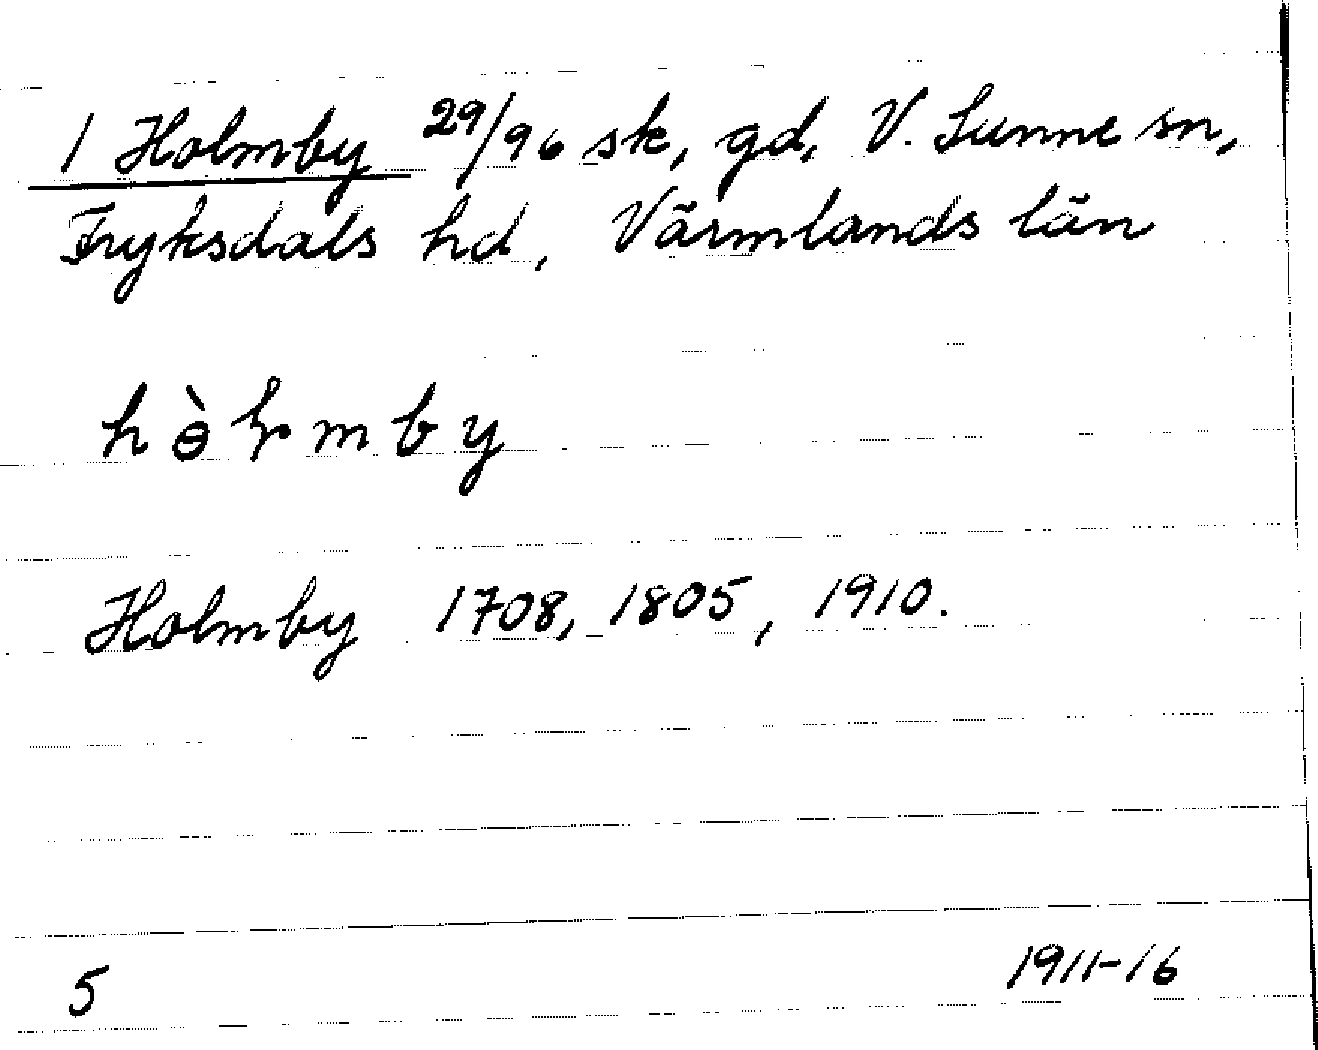 1 Holmby 29/96 sk, gd, V. Sunne sn,
Fryksdals hd, Värmlands län
hɵ̀ɫmby
Holmby 1708, 1805, 1910.
5 1911-16